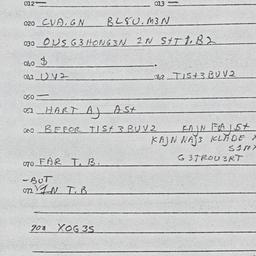 012 — 013 —
020 CVA.GN BLSU.M3N
030 OUSG3HONG3N 2N S+T1.B2
040 $
041 UV2 042 T1S+3BUV2
050 —
051 HART AJ AS+
060 BEFOR T1S+3BUV2 KAJN FAJS+
KAJN NAJS KLADE
G3TROU3RT
070 FAR T.B.
—BUT
071 IN T.B
708 XOG3S